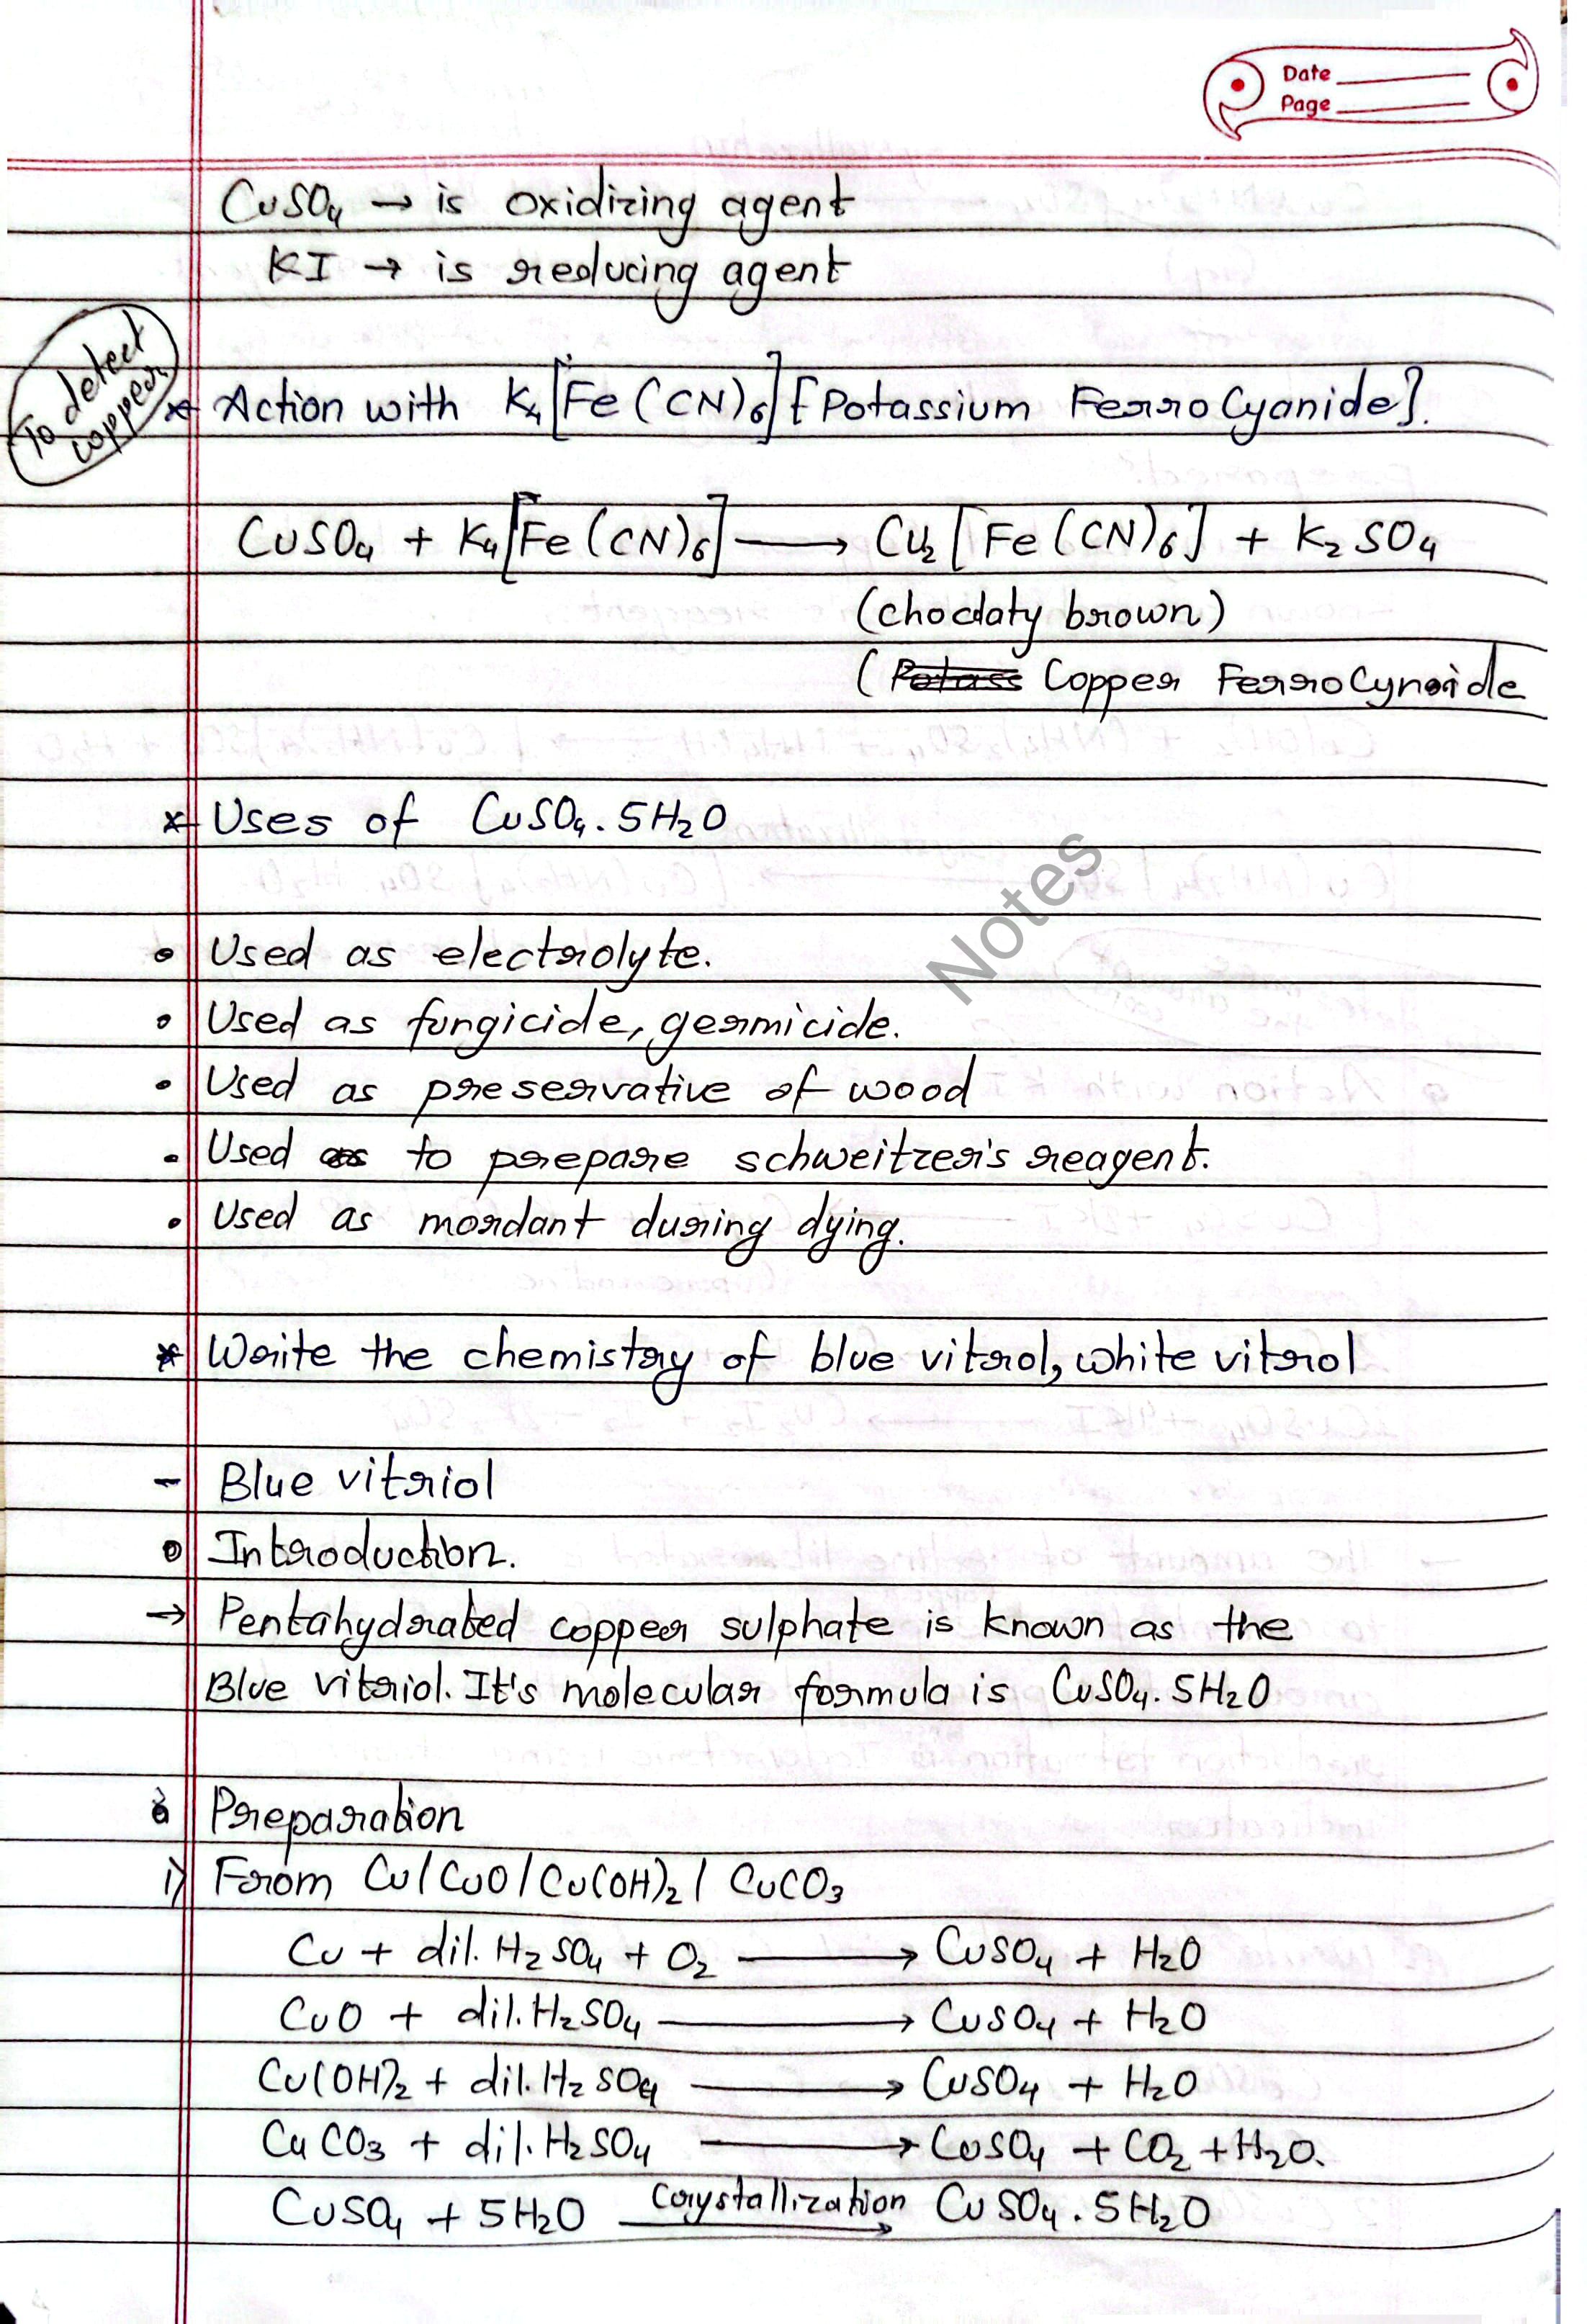 Date
Page
CuSO₄ → is oxidizing agent
KI → is reducing agent
To detect
copper
* Action with K₄[Fe(CN)₆] [Potassium FerroCyanide].
CuSO₄ + K₄[Fe(CN)₆] ⟶ Cu₂[Fe(CN)₆] + K₂SO₄
(choclaty brown)
(Copper FerroCynaide
* Uses of CuSO₄.5H₂O
• Used as electrolyte.
• Used as fungicide, germicide.
• Used as preservative of wood
• Used to prepare schweitzer's reagent.
• Used as mordant during dying.
Notes
* Write the chemistry of blue vitrol, white vitrol
- Blue vitriol
• Introduction.
→ Pentahydrated copper sulphate is known as the
Blue vitriol. It's molecular formula is CuSO₄.5H₂O
• Preparation
i) From Cu/CuO/Cu(OH)₂/CuCO₃
Cu + dil. H₂SO₄ + O₂ ⟶ CuSO₄ + H₂O
CuO + dil. H₂SO₄ ⟶ CuSO₄ + H₂O
Cu(OH)₂ + dil. H₂SO₄ ⟶ CuSO₄ + H₂O
CuCO₃ + dil. H₂SO₄ ⟶ CuSO₄ + CO₂ + H₂O.
CuSO₄ + 5H₂O crystallization → CuSO₄.5H₂O